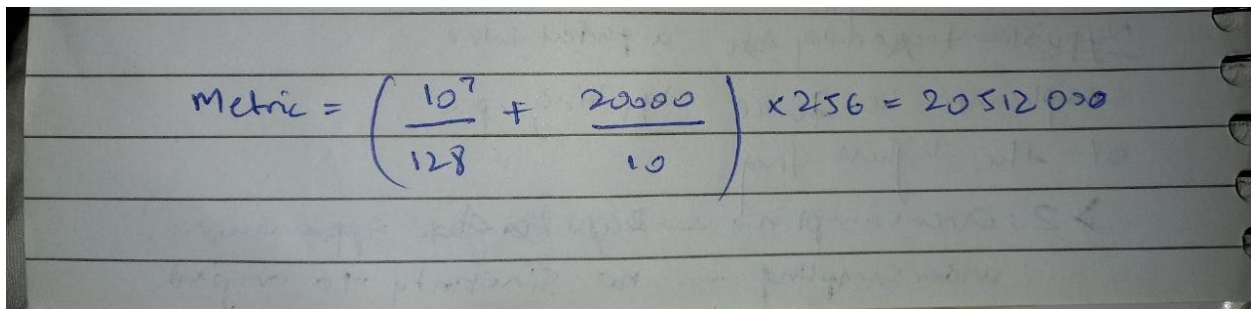 Metric = ( 10⁷ / 128 + 20000 / 10 ) × 256 = 20512000